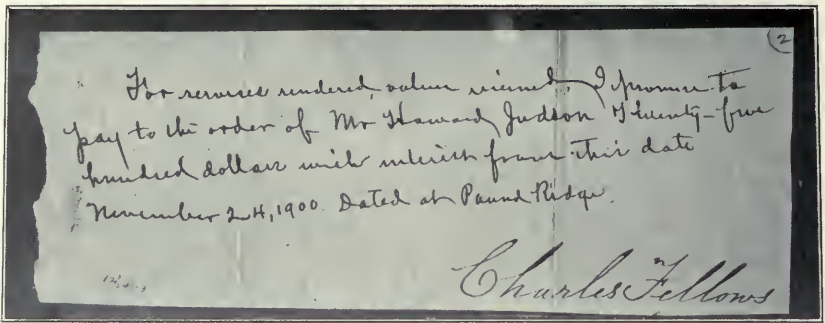 (2)
For services rendered, value received, I promise to
pay to the order of Mr Howard Judson Twenty-five
hundred dollars with interest from this date
November 24, 1900. Dated at Pound Ridge.
Charles Fellows